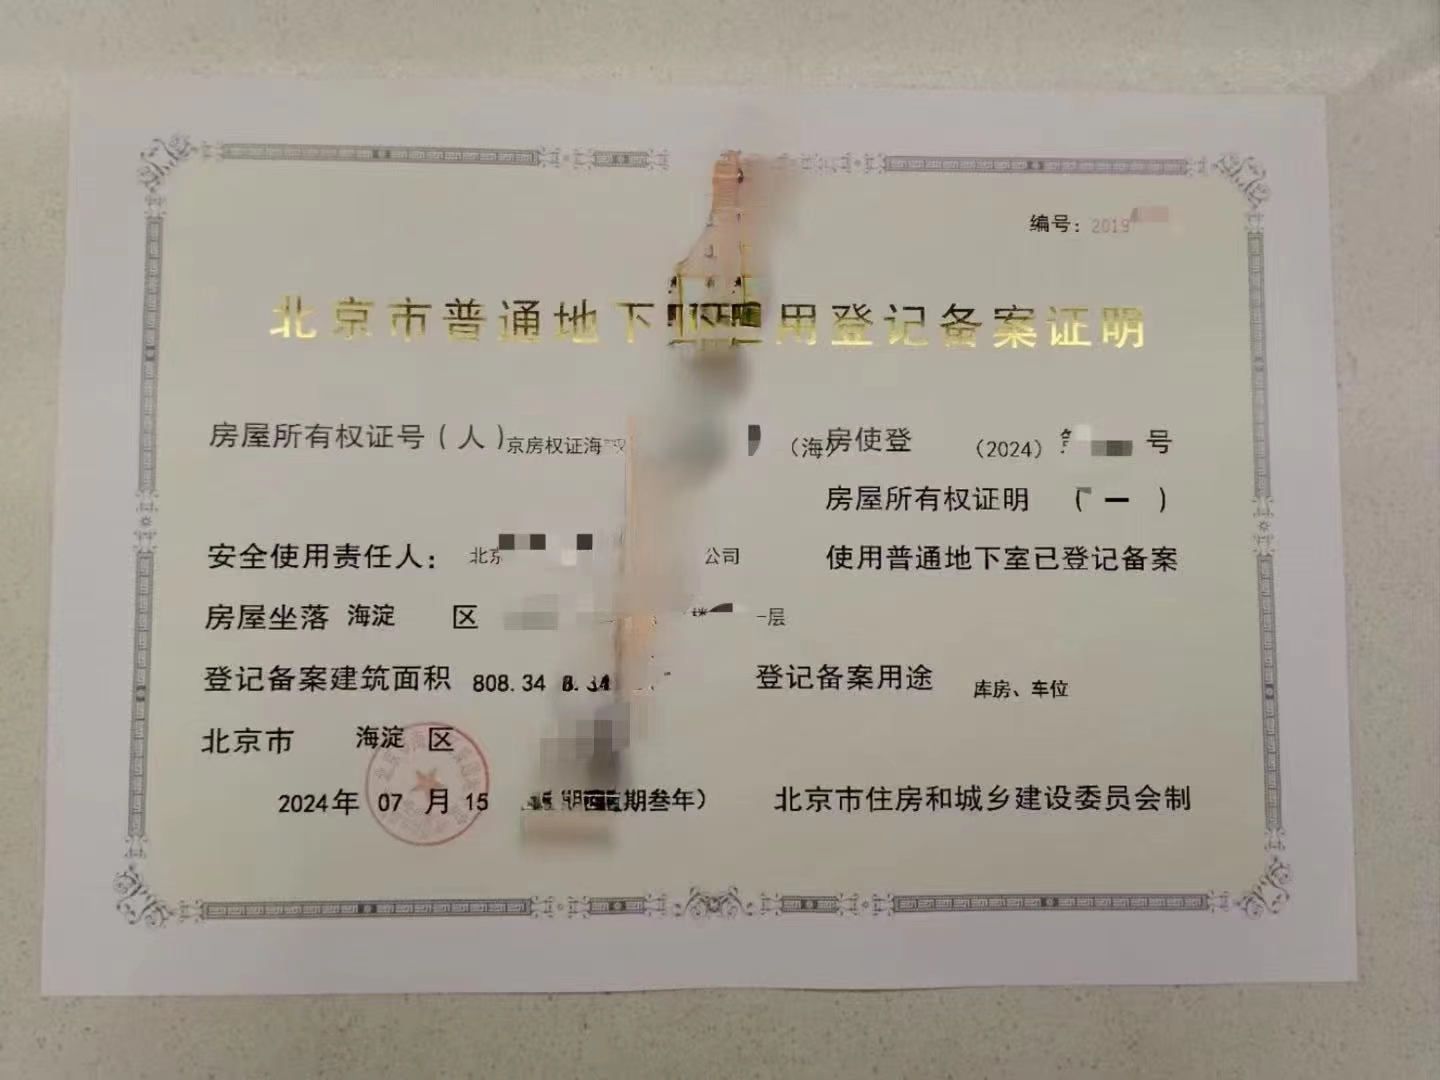 编号：2019
北京市普通地下 用登记备案证明
房屋所有权证号（人） 京房权证海 （海） 房使登 （2024） 号
房屋所有权证明 （ 一 ）
安全使用责任人： 北京 公司 使用普通地下室已登记备案
房屋坐落 海淀 区 一层
登记备案建筑面积 808.34 8.34 登记备案用途 库房、车位
北京市 海淀 区
2024年 07 月 15 期叁年） 北京市住房和城乡建设委员会制